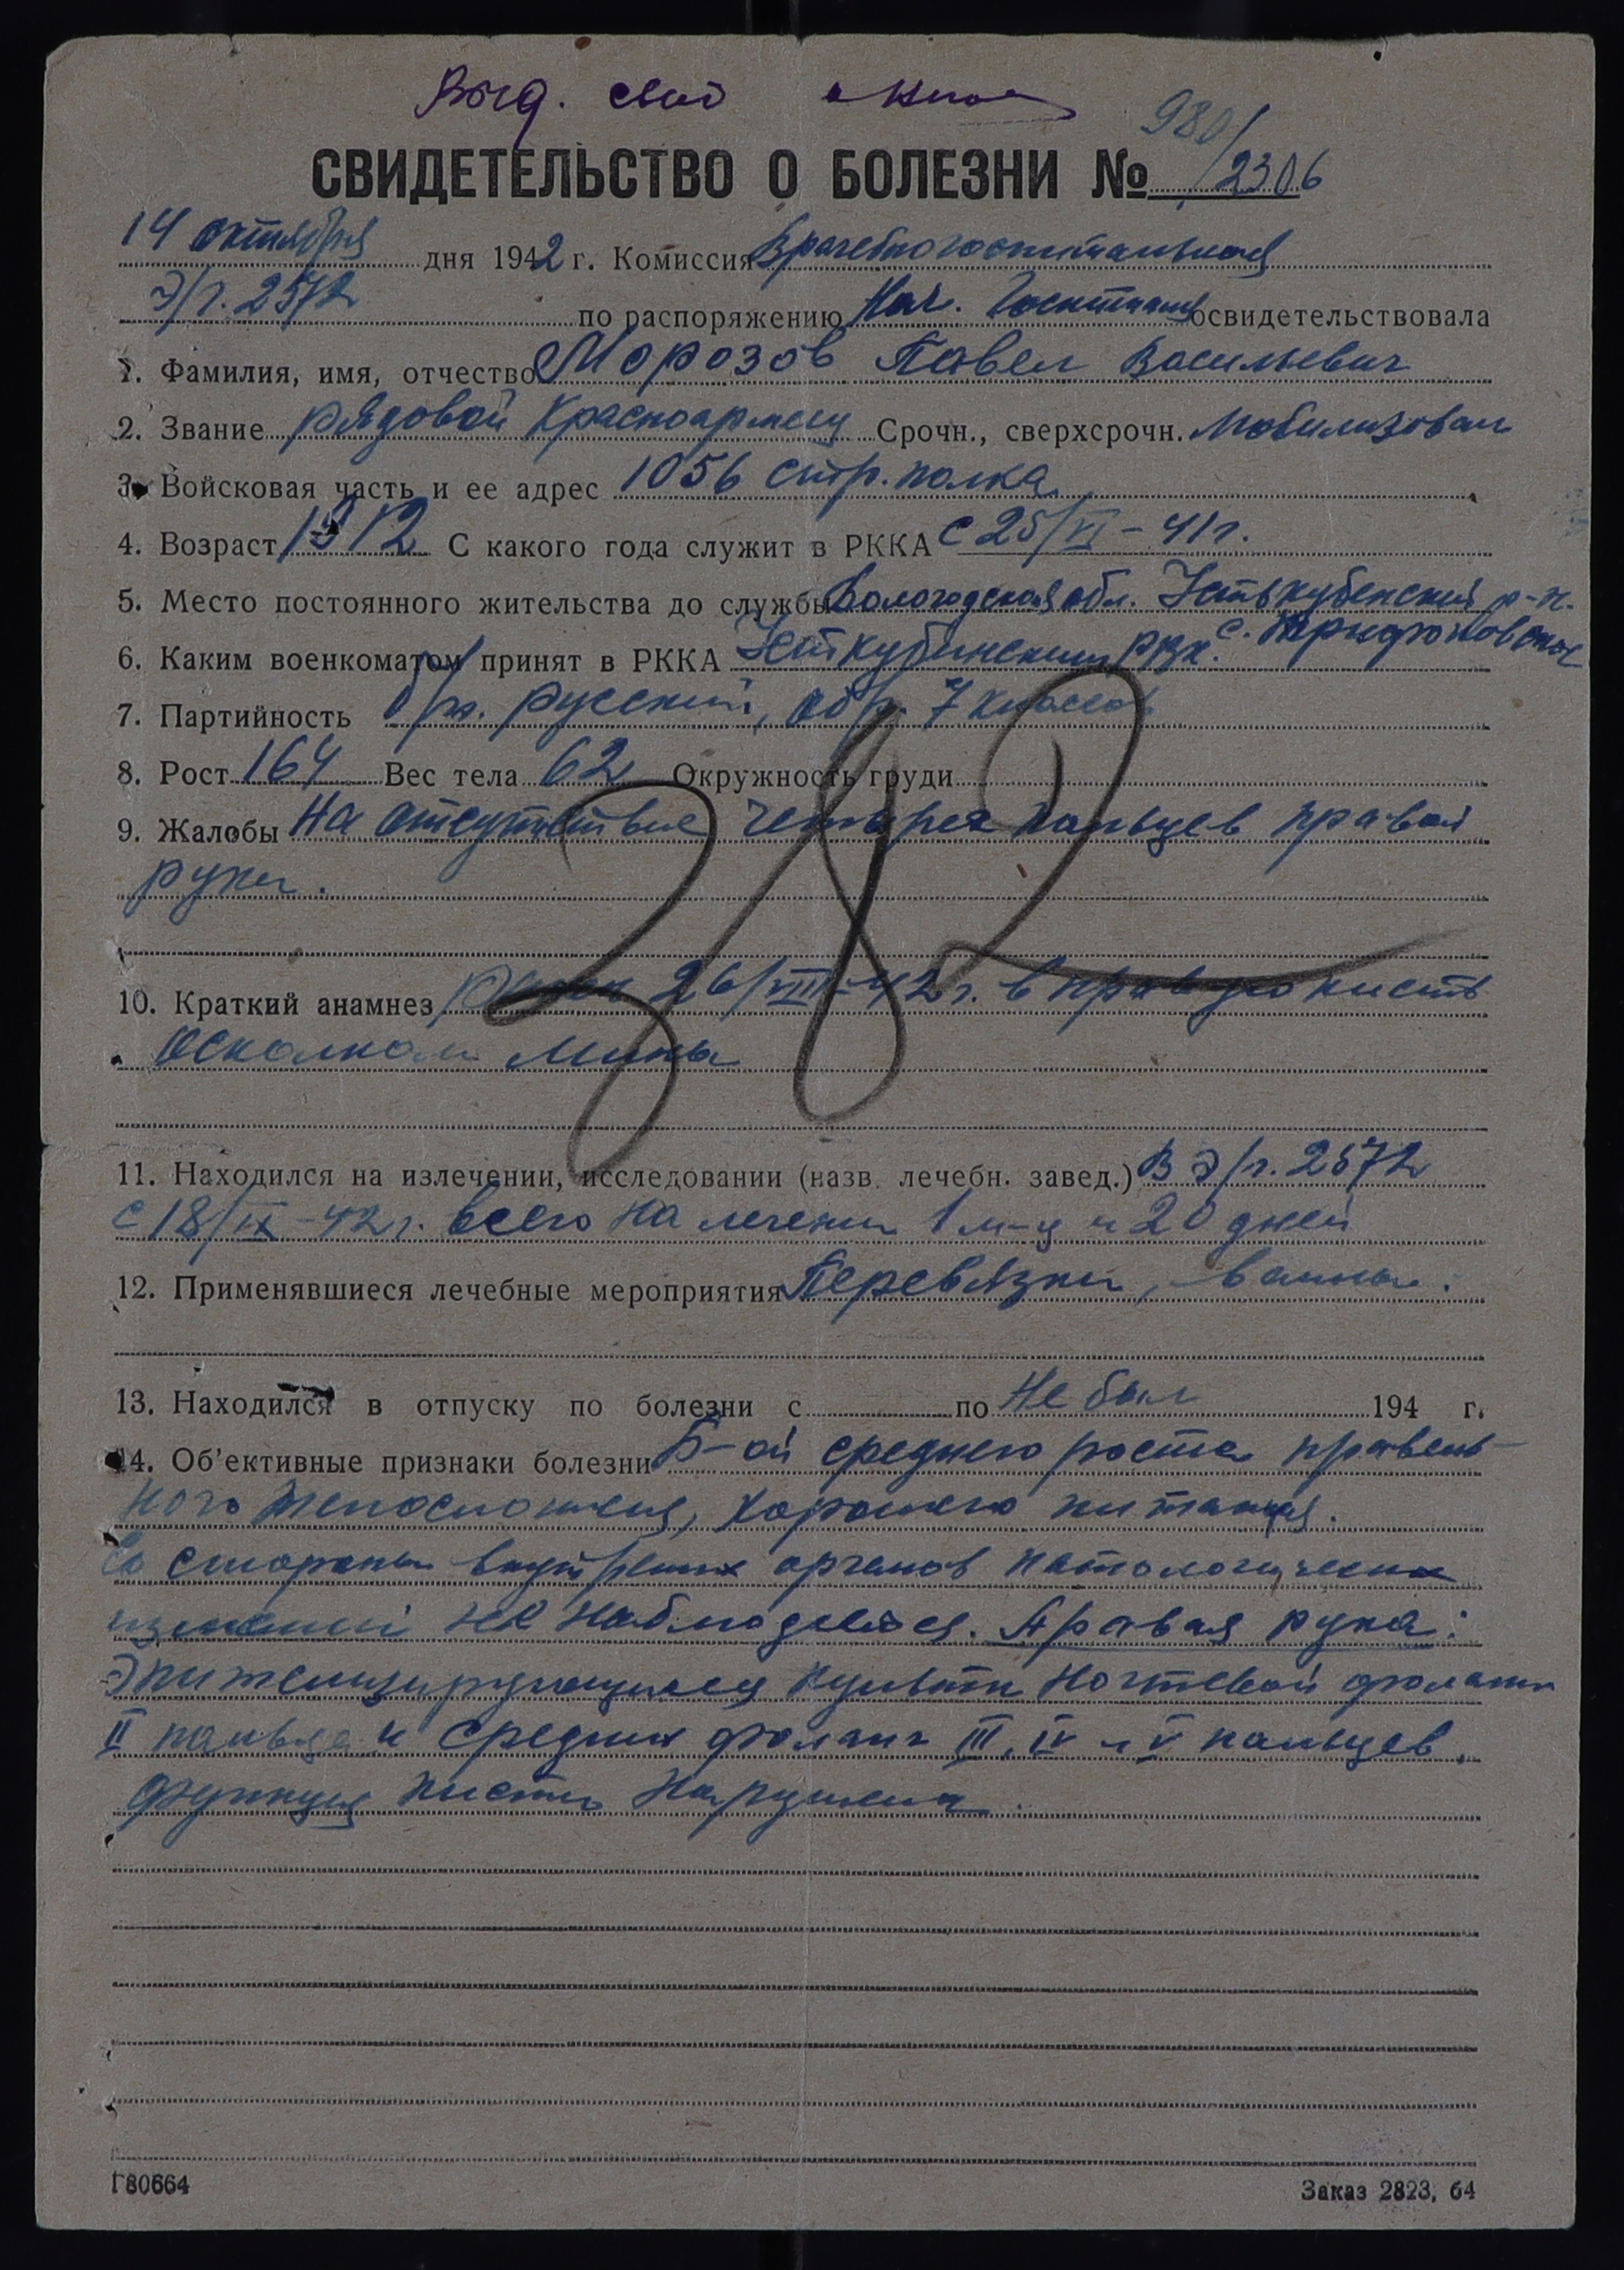 Выд.
980/
СВИДЕТЕЛЬСТВО О БОЛЕЗНИ № /2306
14 октября дня 1942 г. Комиссия Врачебногоспитальная
Э/г. 2572 по распоряжению Нач. Госпиталя освидетельствовала
1. Фамилия, имя, отчество Морозов Павел Васильевич
2. Звание рядовой Красноармеец Срочн., сверхсрочн. Мобилизован
3. Войсковая часть и ее адрес 1056 стр. полка
4. Возраст 1912 С какого года служит в РККА с 25/VI – 41 г.
5. Место постоянного жительства до службы Вологодская обл. Устькубенский р-н.
с. Трифоновское
6. Каким военкоматом принят в РККА Усткубинским РВК.
7. Партийность б/п. русский, обр. 7 классов
8. Рост 164 Вес тела 62 Окружность груди
9. Жалобы На отсутствие четырех пальцев правой
руки.
382
10. Краткий анамнез ранен 26/VIII-42 г. в правую кисть
осколком мины
11. Находился на излечении, исследовании (назв. лечебн. завед.) В Э/г. 2572
с 18/IX-42 г. всего на лечении 1 м-ц и 20 дней
12. Применявшиеся лечебные мероприятия Перевязки, ванны.
13. Находился в отпуску по болезни с по Не был 194 г.
14. Об'ективные признаки болезни Б-ой среднего роста правиль-
ного телосложения, хорошего питания.
Со стороны внутренних органов патологических
изменений не наблюдается. Правая рука:
Эпителизирующиеся культи ногтевой фаланги
II пальца и средних фаланг III, IV и V пальцев.
функция кисти нарушена.
Г80664 Заказ 2823, 64